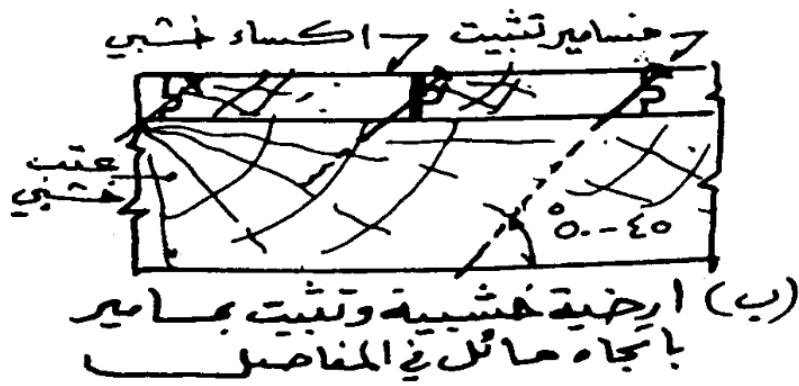 مسامير تثبيت
اكساء خشبي
عتب
خشبي
٤٥-٥٠°
(ب) ارضية خشبية وتثبت بمسامير
باتجاه مائل في المفاصل